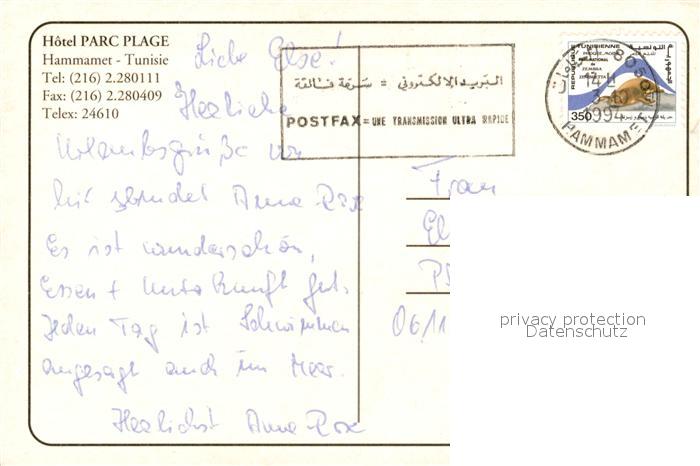 Hôtel PARC PLAGE
Hammamet - Tunisie
Tel: (216) 2.280111
Fax: (216) 2.280409
Telex: 24610
البريد الالكتروني = سرعة فائقة
POSTFAX = UNE TRANSMISSION ULTRA RAPIDE
REPUBLIQUE TUNISIENNE
350
1994
HAMMAMET
Liebe Else!
Herzliche
Urlaubsgrüße von
hier sendet Anna Rose
Es ist wunderschön,
Essen + Unterkunft gut.
Jeden Tag ist Schwimmen
angesagt auch im Meer.
Herzlichst Anna-Rose
Frau
El
0611
privacy protection
Datenschutz